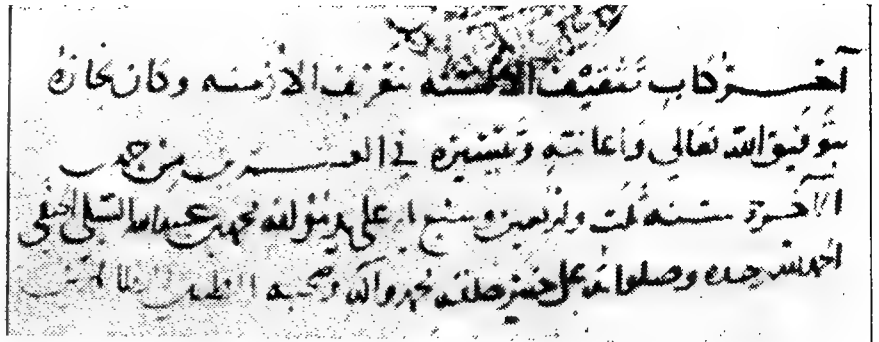 آخر كتاب تثقيف الألسنه بتعريف الازمنه وكان نجازه
بتوفيق الله تعالى واعانته وتيسيره في العشرين من جمدى
الآخرة سنه ثلث واربعين وسبع على يد مؤلفه محمد بن عبد الله الشبلي الحنفي
الحمد لله وحده وصلواته على خير خلقه محمد وآله وصحبه